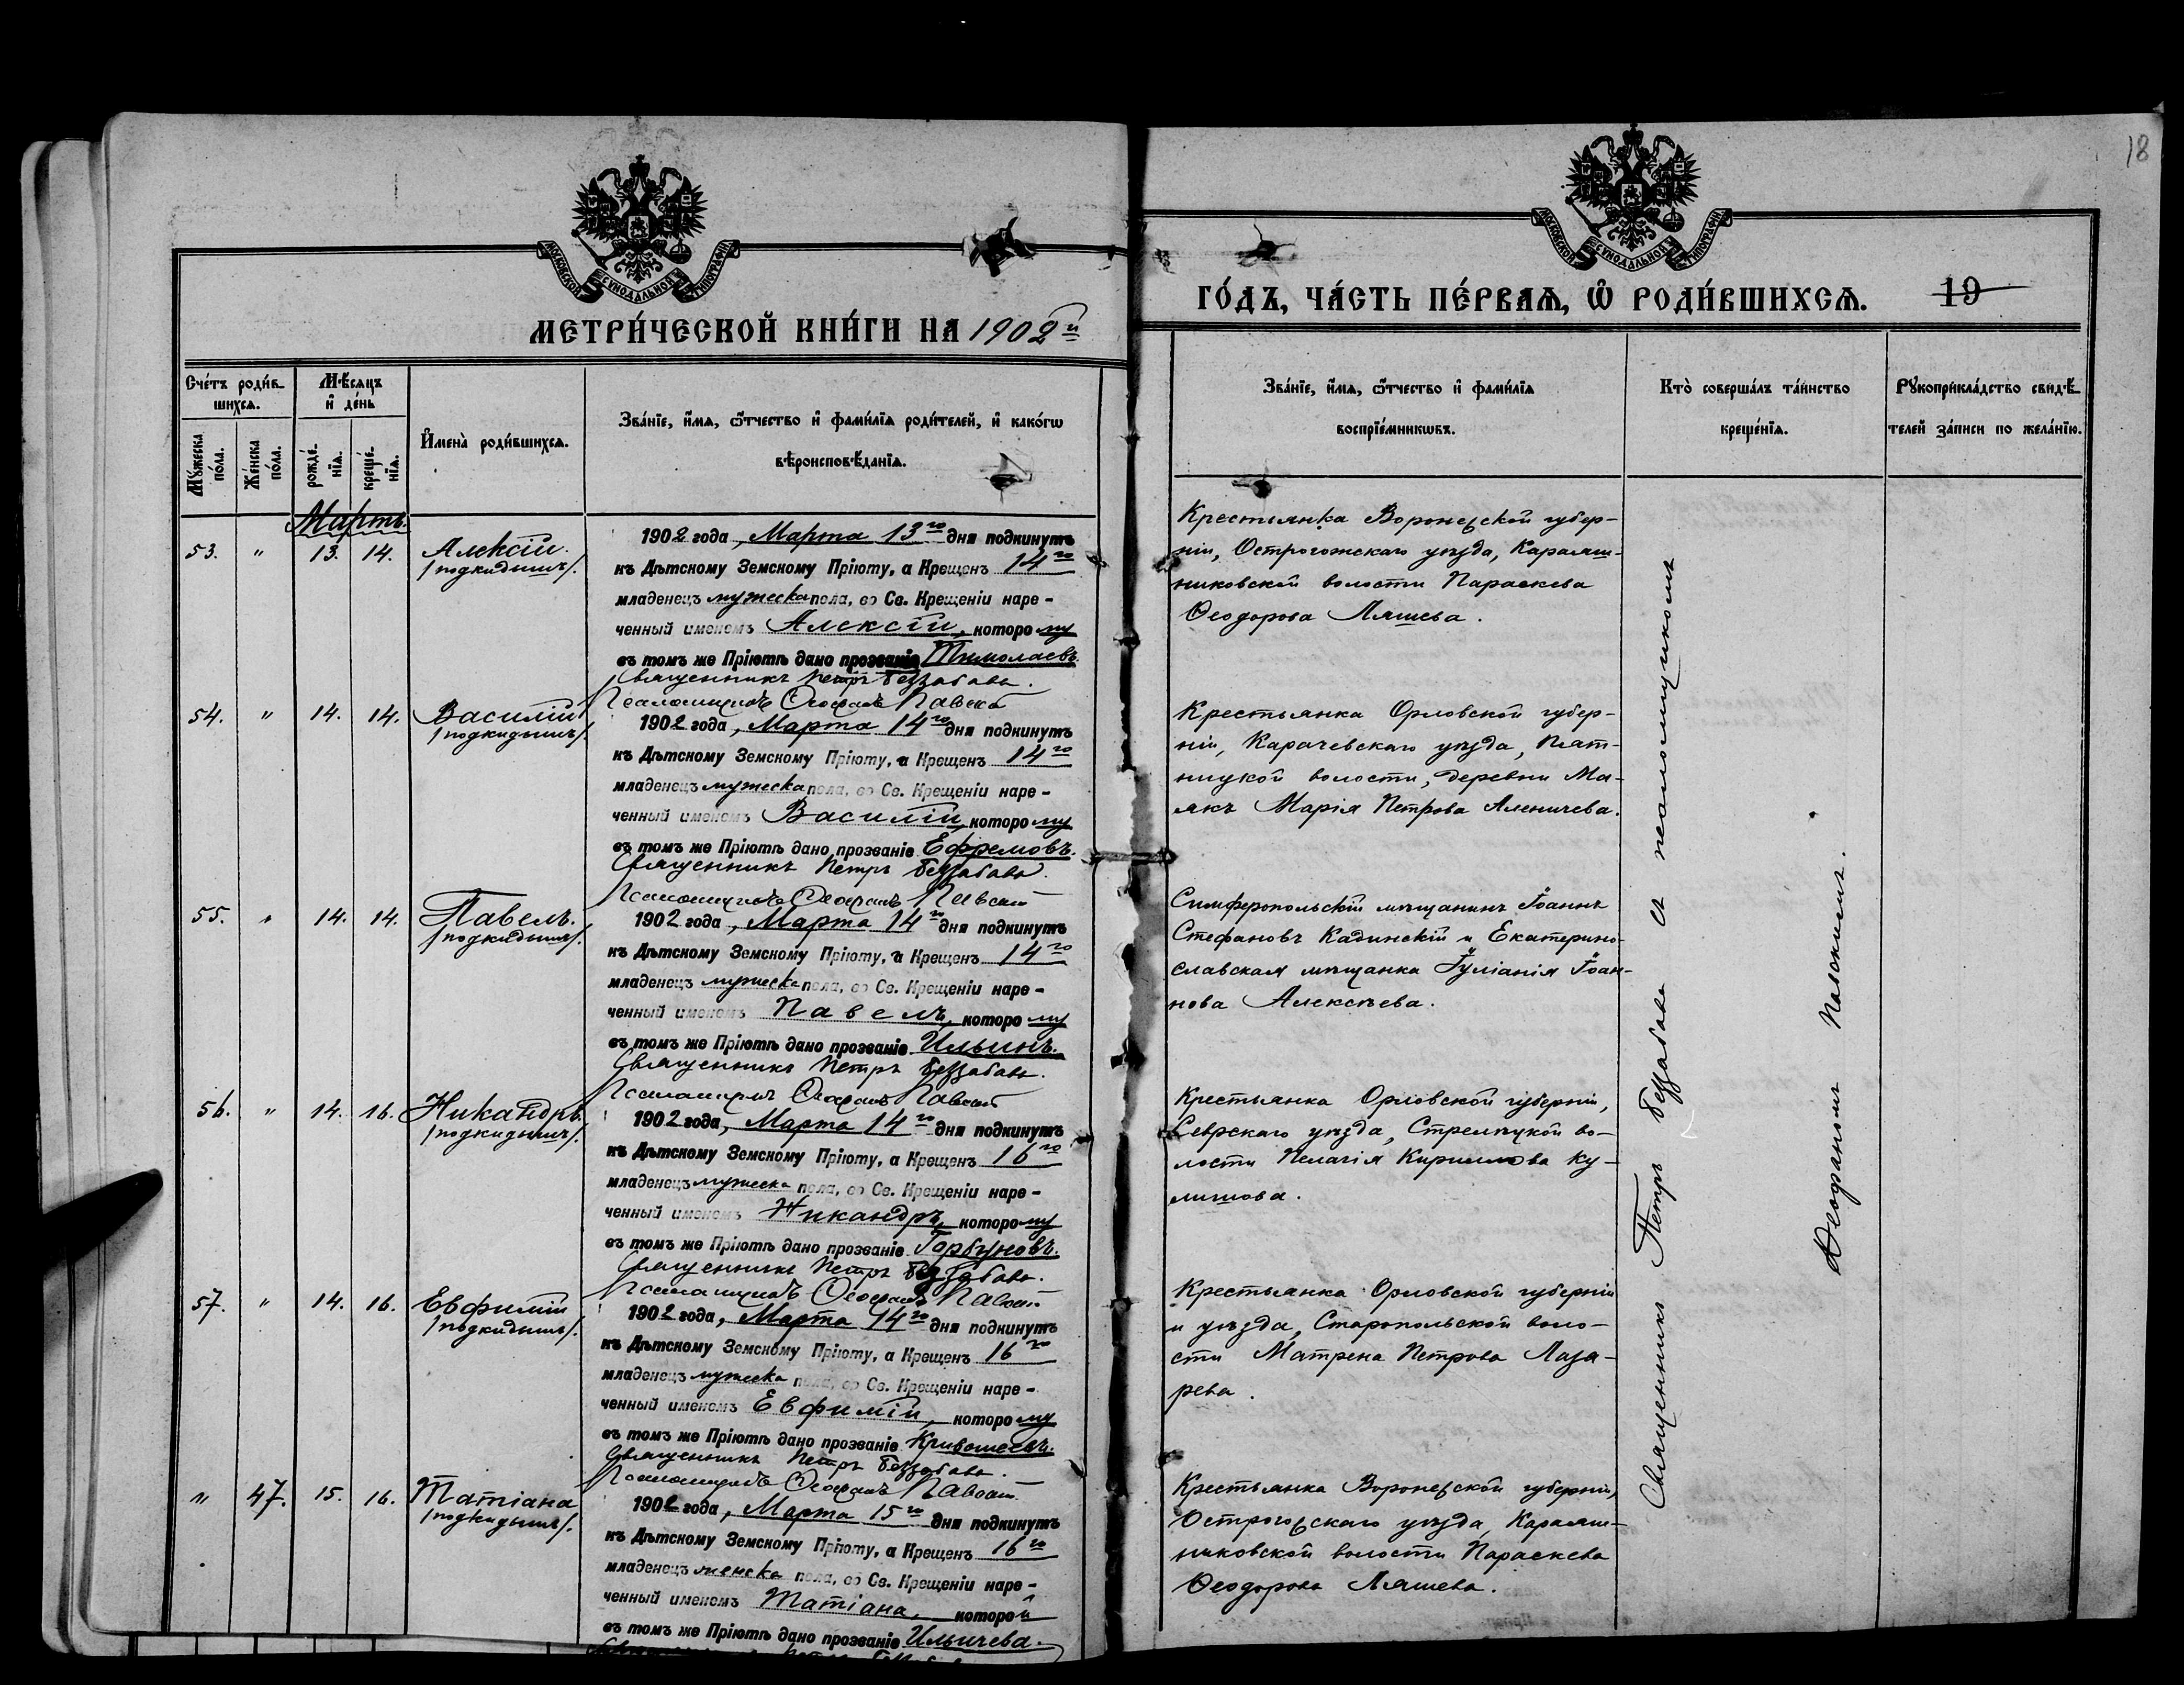 18
МОСКОВСКОЙ СѴНОДАЛЬНОЙ ТИПОГРАФІИ
МОСКОВСКОЙ СѴНОДАЛЬНОЙ ТИПОГРАФІИ
МЕТРИ́ЧЕСКОЙ КНИ́ГИ НА 1902й
ГО́ДЪ, ЧА́СТЬ ПЕ́РВАѦ, Ѿ РОДИ́ВШИХСѦ. 19
Сче́тъ роди́в-
шихсѧ.
Мꙋжеска по́ла.
Же́нска по́ла.
Мѣ́сѧцъ и҆ де́нь
рожде́-
нїѧ.
креще́-
нїѧ.
И҆мена̀ роди́вшихсѧ.
Зва́нїе, и҆́мѧ, ѻ҆́тчество и҆ фами́лїѧ роди́телей, и҆ како́гѡ
вѣроисповѣ́данїѧ.
Зва́нїе, и҆́мѧ, ѻ҆́тчество и҆ фами́лїѧ
воспрїе́мникѡвъ.
Кто̀ соверша́лъ та́инство
креще́нїѧ.
Рꙋкоприкла́дство свидѣ́-
телей за́писи по жела́нїю.
Мартъ.
53. " 13. 14. Алексій.
/подкидышъ/.
1902 года, Марта 13го дня подкинутъ
къ Дѣтскому Земскому Пріюту, а Крещенъ 14го
младенецъ мужеска пола, во Св. Крещеніи наре-
ченный именемъ Алексій, которому
въ томъ же Пріютѣ дано прозваніе Тимолаевъ.
Священникъ Петръ Беззабава.
Псаломщикъ Ѳеофанъ Павскій
Крестьянка Воронежской губер-
ніи, Острогожскаго уѣзда, Караяш-
никовской волости Параскева
Ѳеодорова Ляшева.
54. " 14. 14. Василій
/подкидышъ/.
1902 года, Марта 14го дня подкинутъ
къ Дѣтскому Земскому Пріюту, а Крещенъ 14го
младенецъ мужеска пола, во Св. Крещеніи наре-
ченный именемъ Василій, которому
въ томъ же Пріютѣ дано прозваніе Ефремовъ.
Священникъ Петръ Беззабава.
Псаломщикъ Ѳеофанъ Павскій
Крестьянка Орловской губер-
ніи, Карачевскаго уѣзда, Пят-
ницкой волости, деревни Ма-
якъ Марія Петрова Аленичева.
55. " 14. 14. Павелъ.
/подкидышъ/.
1902 года, Марта 14го дня подкинутъ
къ Дѣтскому Земскому Пріюту, а Крещенъ 14го
младенецъ мужеска пола, во Св. Крещеніи наре-
ченный именемъ Павелъ, которому
въ томъ же Пріютѣ дано прозваніе Ильинъ.
Священникъ Петръ Беззабава.
Псаломщикъ Ѳеофанъ Павскій
Симферопольскій мѣщанинъ Іоаннъ
Стефановъ Кадинскій и Екатерино-
славская мѣщанка Іуліанія Іоан-
нова Алексѣева.
56. " 14. 16. Никандръ.
/подкидышъ/.
1902 года, Марта 14го дня подкинутъ
къ Дѣтскому Земскому Пріюту, а Крещенъ 16го
младенецъ мужеска пола, во Св. Крещеніи наре-
ченный именемъ Никандръ, которому
въ томъ же Пріютѣ дано прозваніе Горбуновъ.
Священникъ Петръ Беззабава.
Псаломщикъ Ѳеофанъ Павскій
Крестьянка Орловской губерніи,
Севрскаго уѣзда, Стрелецкой во-
лости Пелагія Кириллова Ку-
лишова.
57. " 14. 16. Евфимій
/подкидышъ/.
1902 года, Марта 14го дня подкинутъ
къ Дѣтскому Земскому Пріюту, а Крещенъ 16го
младенецъ мужеска пола, во Св. Крещеніи наре-
ченный именемъ Евфимій, которому
въ томъ же Пріютѣ дано прозваніе Кривошеевъ.
Священникъ Петръ Беззабава.
Псаломщикъ Ѳеофанъ Павскій
Крестьянка Орловской губерніи
и уѣзда, Старопольской воло-
сти Матрена Петрова Лаза-
рева.
" 47. 15. 16. Татіана
/подкидышъ/.
1902 года, Марта 15го дня подкинутъ
къ Дѣтскому Земскому Пріюту, а Крещенъ 16го
младенецъ женска пола, во Св. Крещеніи наре-
ченный именемъ Татіана, которой
въ томъ же Пріютѣ дано прозваніе Ильичева.
Крестьянка Воронежской губерніи,
Острогожскаго уѣзда, Караяш-
никовской волости Параскева
Ѳеодорова Ляшева.
Священникъ Петръ Беззабава съ псаломщикомъ
Ѳеофаномъ Павскимъ.